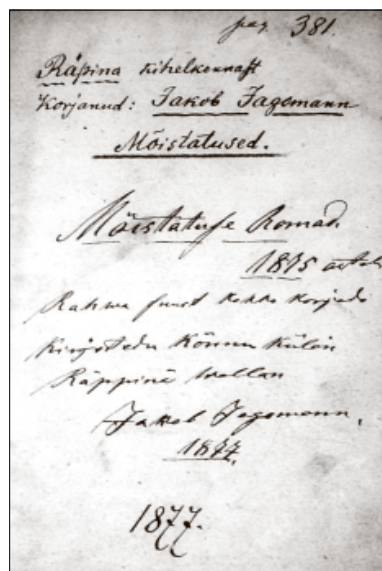 pag. 381.
Räpina kihelkonnast
Korjanud: Jakob Jagomann
Mõistatused.
Mõistatuse Romad
1875
Rahwa suust kokko korjado
Kirjotedu Kõnnu külän
Räppinä wallan
Jakob Jagomann,
1877.
1877.